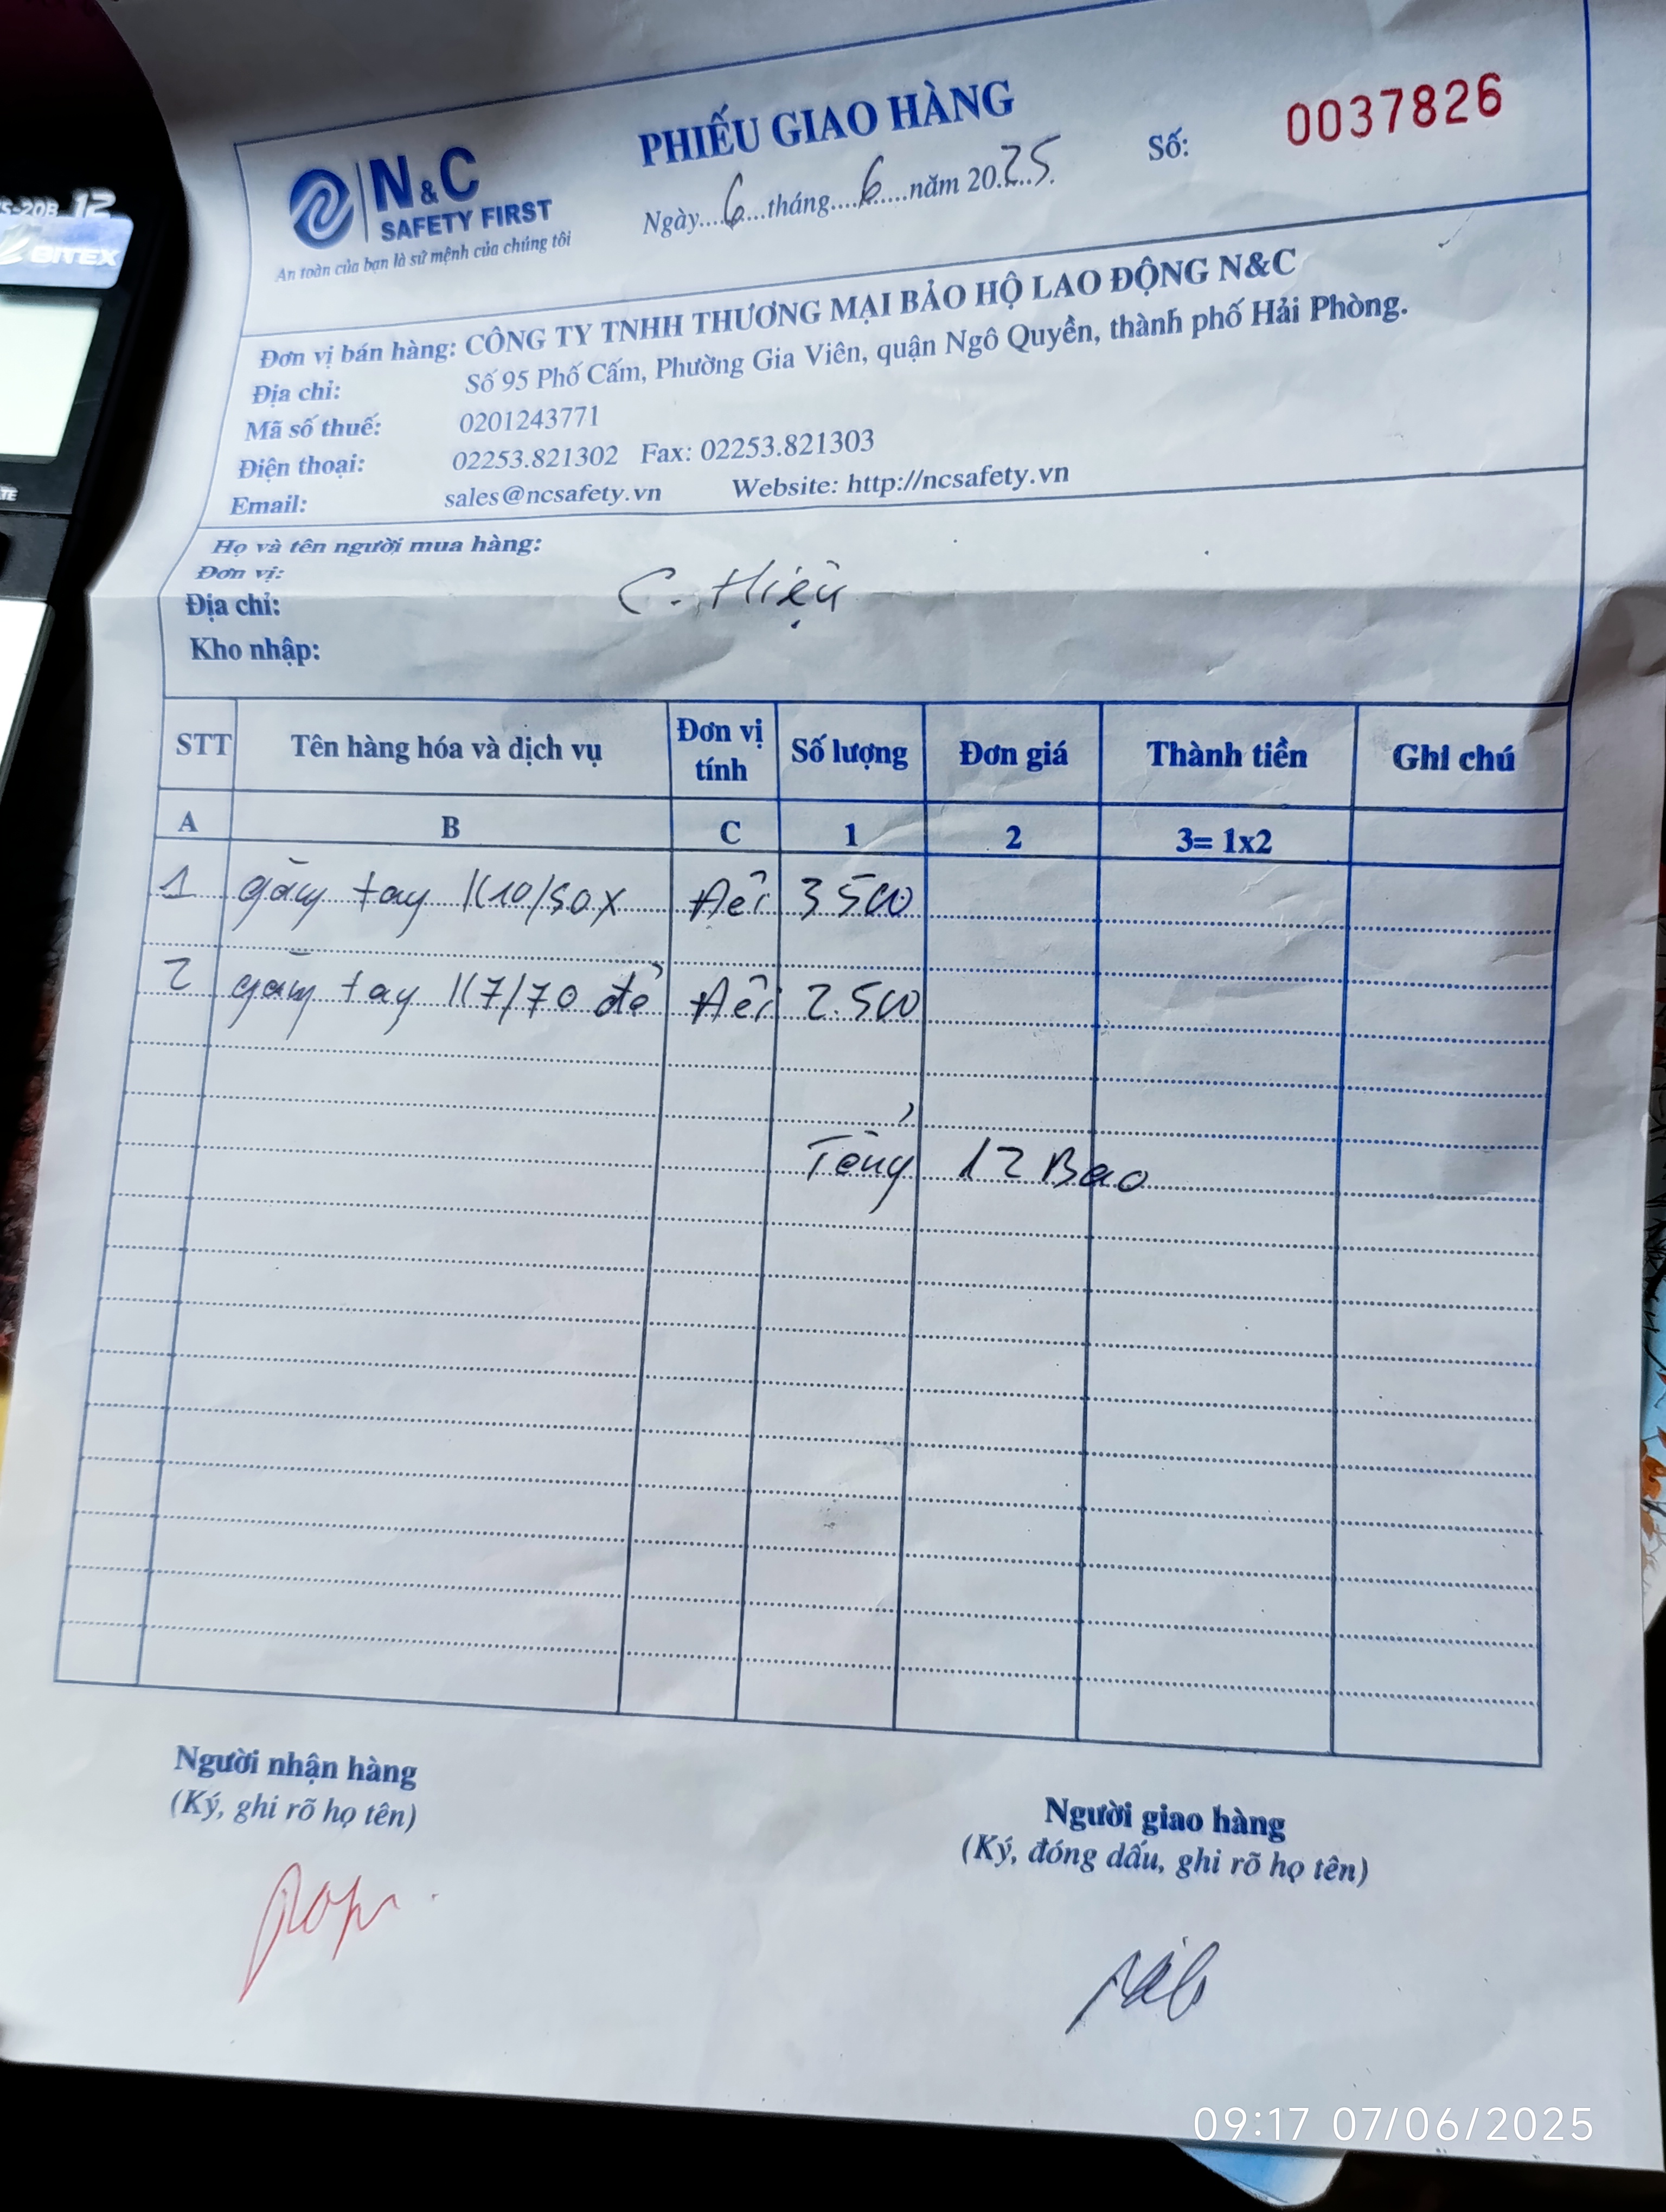 S-20B 12
BITEX
TE
N&C
SAFETY FIRST
An toàn của bạn là sứ mệnh của chúng tôi
PHIẾU GIAO HÀNG
Ngày....6....tháng....6.....năm 20.25.
Số: 0037826
Đơn vị bán hàng: CÔNG TY TNHH THƯƠNG MẠI BẢO HỘ LAO ĐỘNG N&C
Địa chỉ: Số 95 Phố Cấm, Phường Gia Viên, quận Ngô Quyền, thành phố Hải Phòng.
Mã số thuế: 0201243771
Điện thoại: 02253.821302 Fax: 02253.821303
Email: sales@ncsafety.vn Website: http://ncsafety.vn
Họ và tên người mua hàng:
Đơn vị:
Địa chỉ: C. Hiệu
Kho nhập:
STT Tên hàng hóa và dịch vụ Đơn vị tính Số lượng Đơn giá Thành tiền Ghi chú
A B C 1 2 3= 1x2
1 găng tay K10/50X Đôi 3500
2 găng tay K7/70 đỏ Đôi 2.500
Tổng 12 Bao
Người nhận hàng
(Ký, ghi rõ họ tên)
Người giao hàng
(Ký, đóng dấu, ghi rõ họ tên)
09:17 07/06/2025